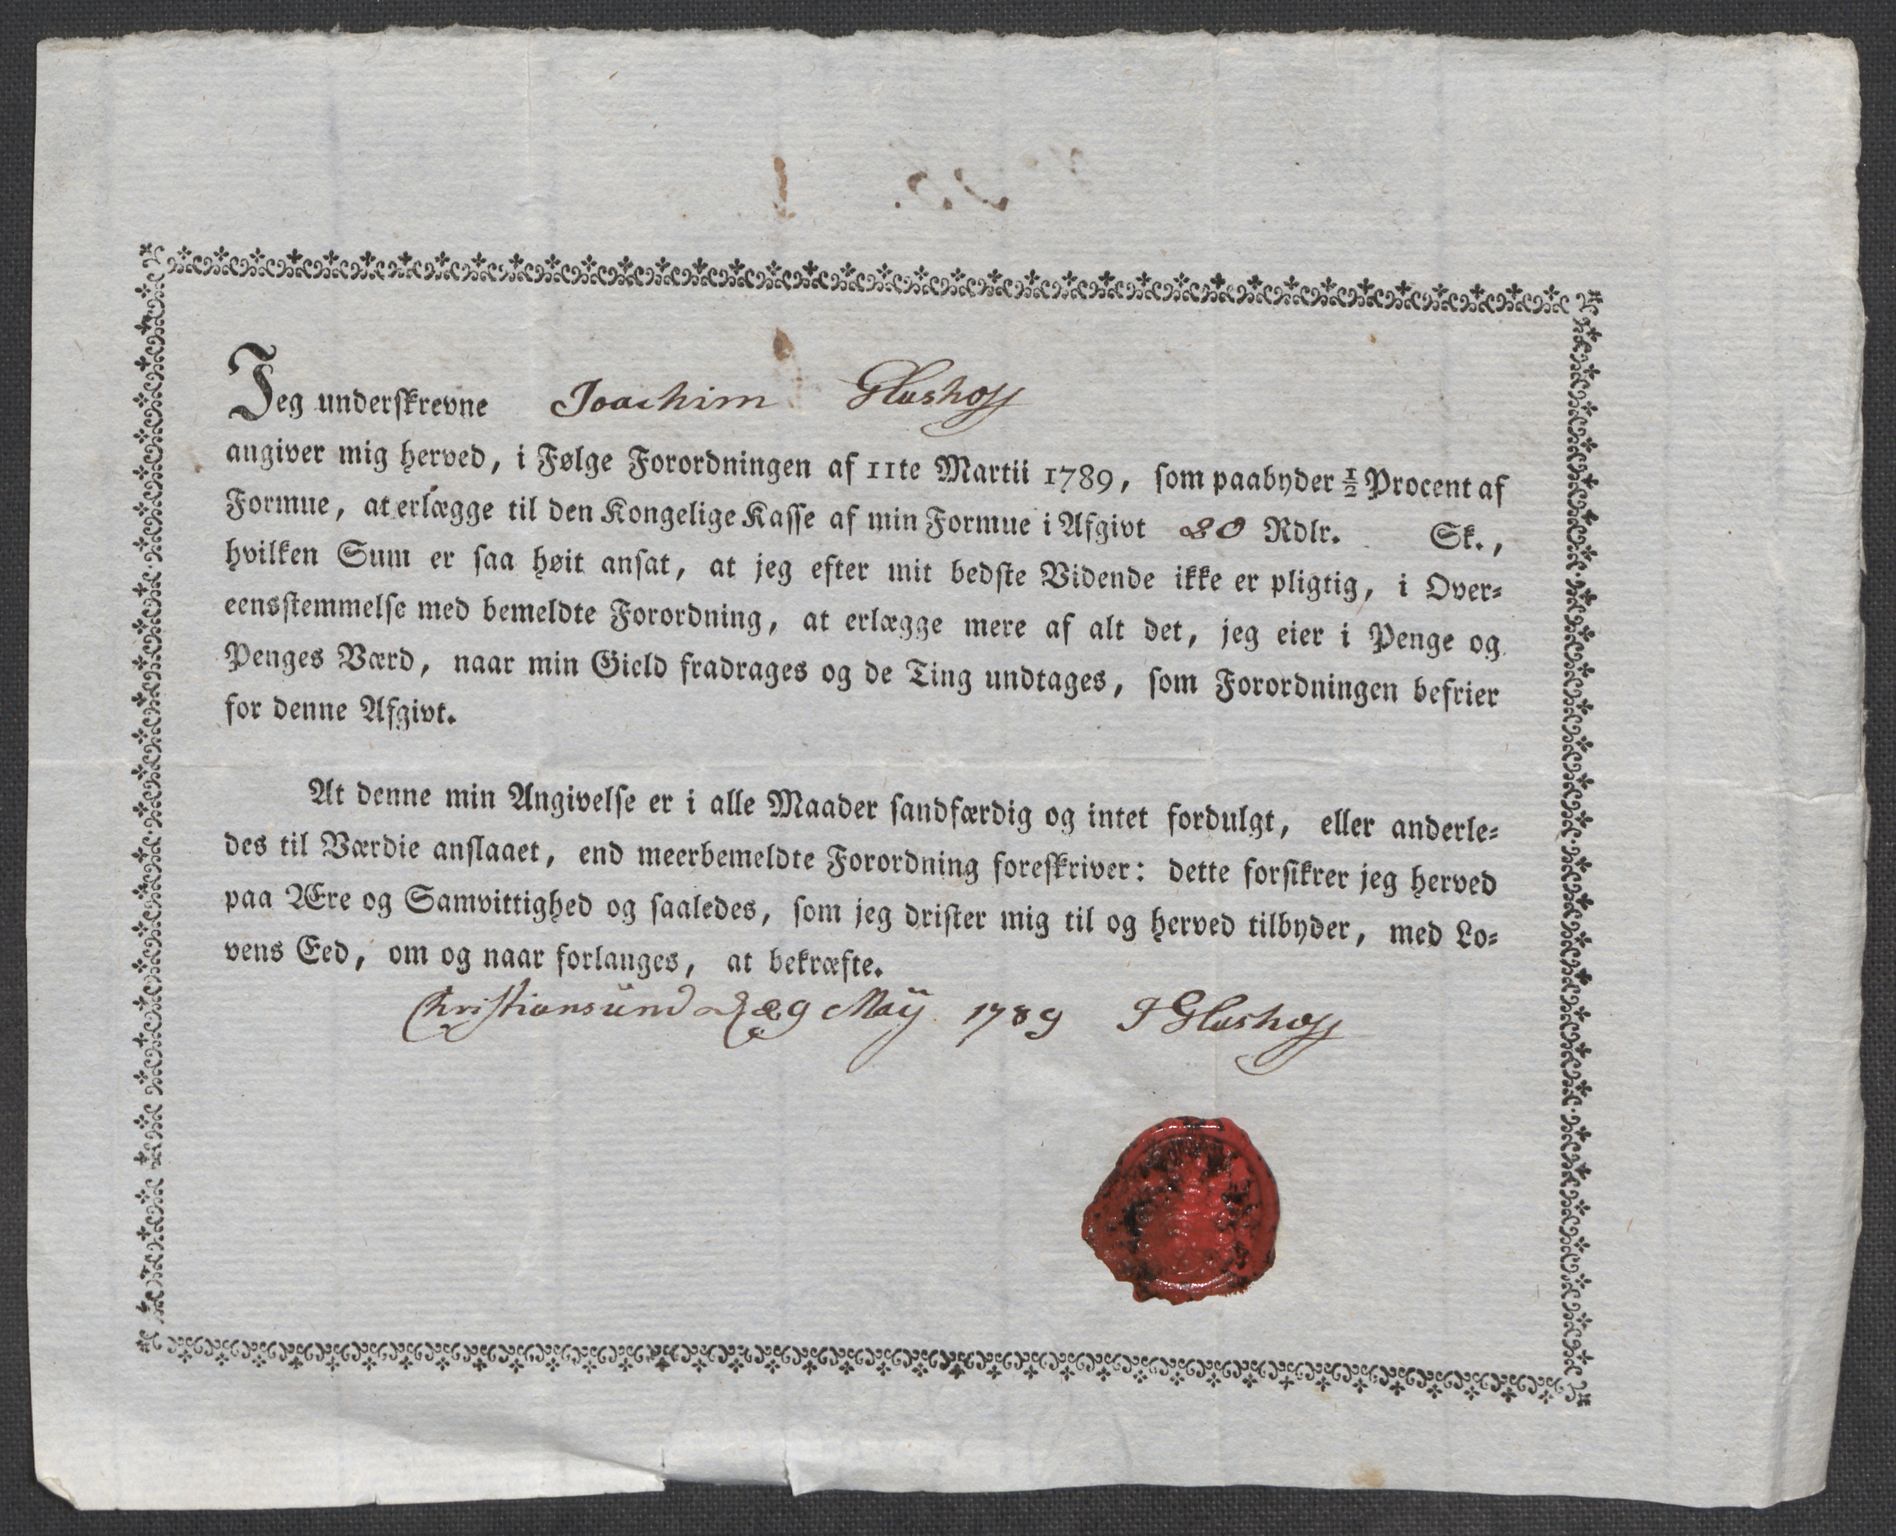 Jeg underskrevne Joachim Glushoff
angiver mig herved, i Følge Forordningen af 11te Martii 1789, som paabyder ½ Procent af
Formue, at erlægge til den Kongelige Kasse af min Formue i Afgivt 20 Rdlr. Sk.,
hvilken Sum er saa høit ansat, at jeg efter mit bedste Vidende ikke er pligtig, i Over-
eensstemmelse med bemeldte Forordning, at erlægge mere af alt det, jeg eier i Penge og
Penges Værd, naar min Gield fradrages og de Ting undtages, som Forordningen befrier
for denne Afgivt.
At denne min Angivelse er i alle Maader sandfærdig og intet fordulgt, eller anderle-
des til Værdie anslaaet, end meerbemeldte Forordning foreskriver: dette forsikrer jeg herved
paa Ære og Samvittighed og saaledes, som jeg drister mig til og herved tilbyder, med Lo-
vens Eed, om og naar forlanges, at bekræfte.
Christiansund d 29 Maÿ 1789 J Glushoff